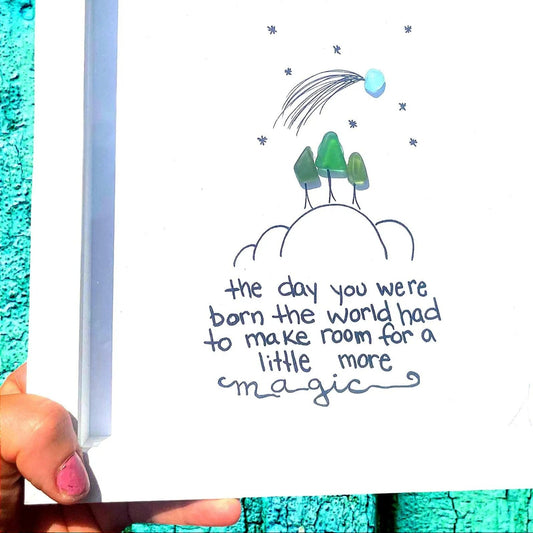 the day you were
born the world had
to make room for a
little more
magic